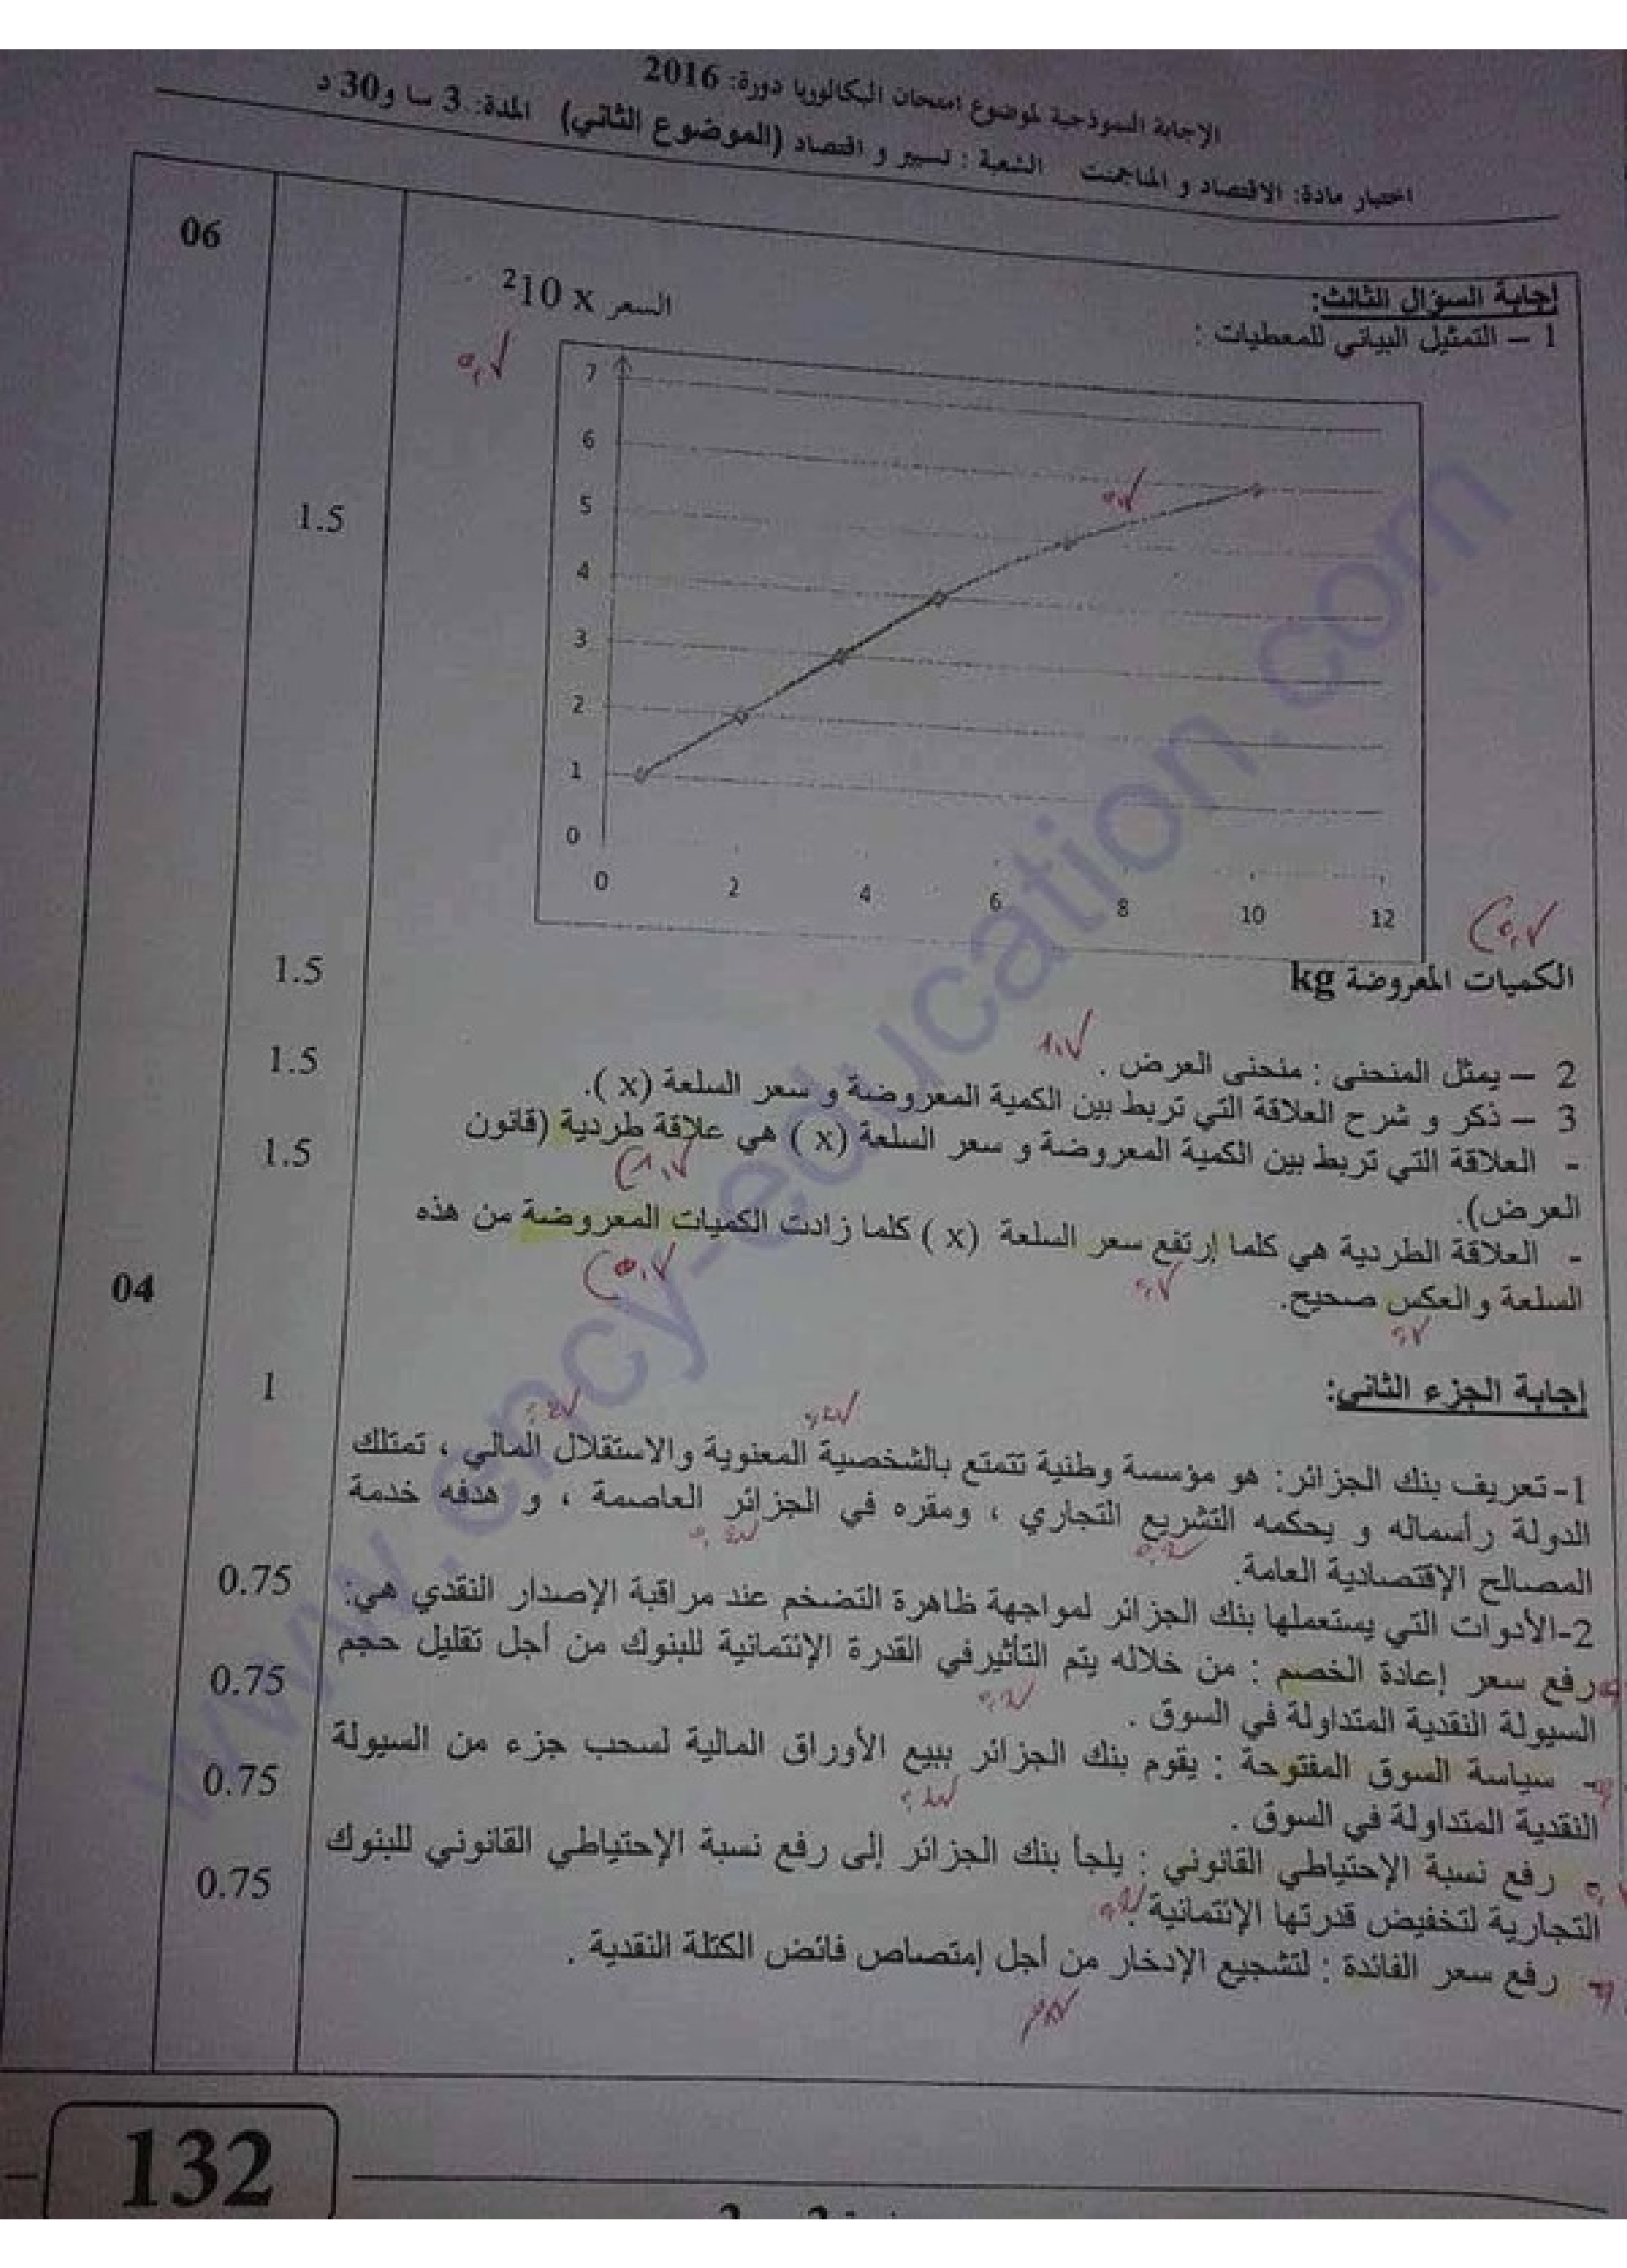 الإجابة النموذجية لموضوع امتحان البكالوريا دورة: 2016
اختبار مادة: الاقتصاد و المناجمنت الشعبة : تسيير و اقتصاد (الموضوع الثاني) المدة: 3 سا و30 د
06
إجابة السؤال الثالث:
1 – التمثيل البياني للمعطيات :
السعر x 10²
7
6
5
4
3
2
1
0
0 2 4 6 8 10 12
1.5
الكميات المعروضة kg
1.5
2 – يمثل المنحنى : منحنى العرض .
1.5
3 – ذكر و شرح العلاقة التي تربط بين الكمية المعروضة و سعر السلعة (x ).
- العلاقة التي تربط بين الكمية المعروضة و سعر السلعة (x ) هي علاقة طردية (قانون
1.5
العرض).
- العلاقة الطردية هي كلما إرتفع سعر السلعة (x ) كلما زادت الكميات المعروضة من هذه
السلعة والعكس صحيح.
04
إجابة الجزء الثاني:
1
1-تعريف بنك الجزائر: هو مؤسسة وطنية تتمتع بالشخصية المعنوية والاستقلال المالي ، تمتلك
الدولة رأسماله و يحكمه التشريع التجاري ، ومقره في الجزائر العاصمة ، و هدفه خدمة
المصالح الإقتصادية العامة.
2-الأدوات التي يستعملها بنك الجزائر لمواجهة ظاهرة التضخم عند مراقبة الإصدار النقدي هي:
0.75
رفع سعر إعادة الخصم : من خلاله يتم التأثيرفي القدرة الإئتمانية للبنوك من أجل تقليل حجم
السيولة النقدية المتداولة في السوق .
0.75
- سياسة السوق المفتوحة : يقوم بنك الجزائر ببيع الأوراق المالية لسحب جزء من السيولة
النقدية المتداولة في السوق .
0.75
- رفع نسبة الإحتياطي القانوني : يلجأ بنك الجزائر إلى رفع نسبة الإحتياطي القانوني للبنوك
التجارية لتخفيض قدرتها الإئتمانية.
0.75
- رفع سعر الفائدة : لتشجيع الإدخار من أجل إمتصاص فائض الكتلة النقدية .
132
www.ency-education.com